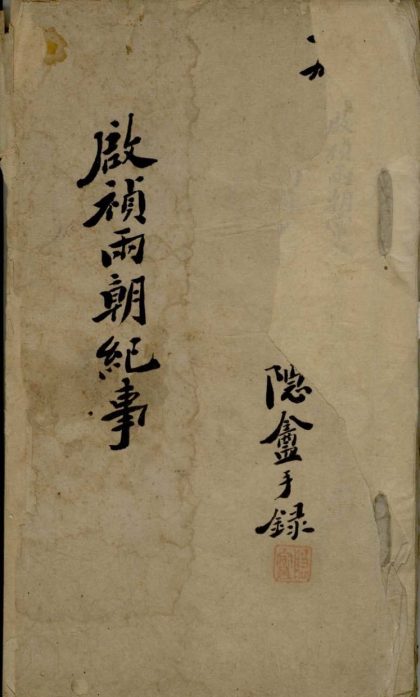 啟禎兩朝紀事
隐盦手録